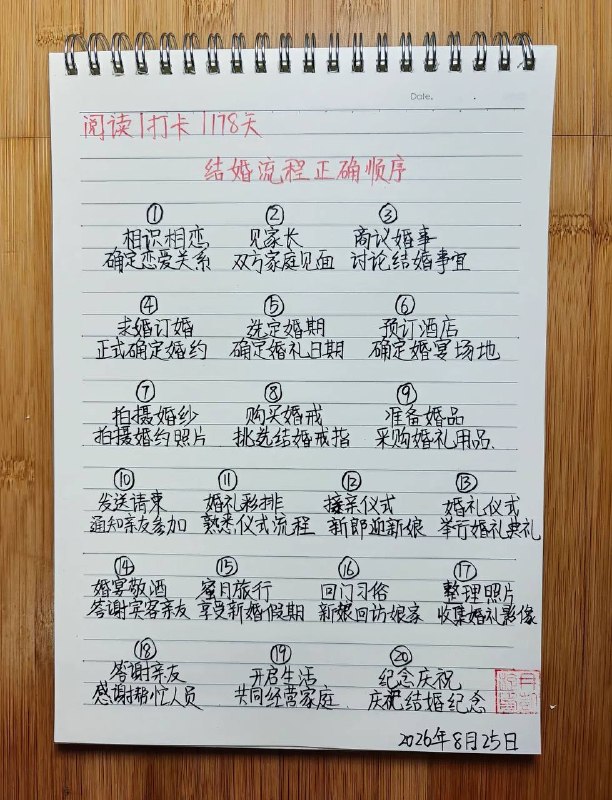 Date.
阅读|打卡|178天
结婚流程正确顺序
① ② ③
相识相恋 见家长 商议婚事
确定恋爱关系 双方家庭见面 讨论结婚事宜
④ ⑤ ⑥
求婚订婚 选定婚期 预订酒店
正式确定婚约 确定婚礼日期 确定婚宴场地
⑦ ⑧ ⑨
拍摄婚纱 购买婚戒 准备婚品
拍摄婚约照片 挑选结婚戒指 采购婚礼用品、
⑩ ⑪ ⑫ ⑬
发送请柬 婚礼彩排 接亲仪式 婚礼仪式
通知亲友参加 熟悉仪式流程 新郎迎新娘 举行婚礼典礼
⑭ ⑮ ⑯ ⑰
婚宴敬酒 蜜月旅行 回门习俗 整理照片
答谢宾客亲友 享受新婚假期 新娘回访娘家 收集婚礼影像
⑱ ⑲ ⑳
答谢亲友 开启生活 纪念庆祝
感谢帮忙人员 共同经营家庭 庆祝结婚纪念
2026年8月25日